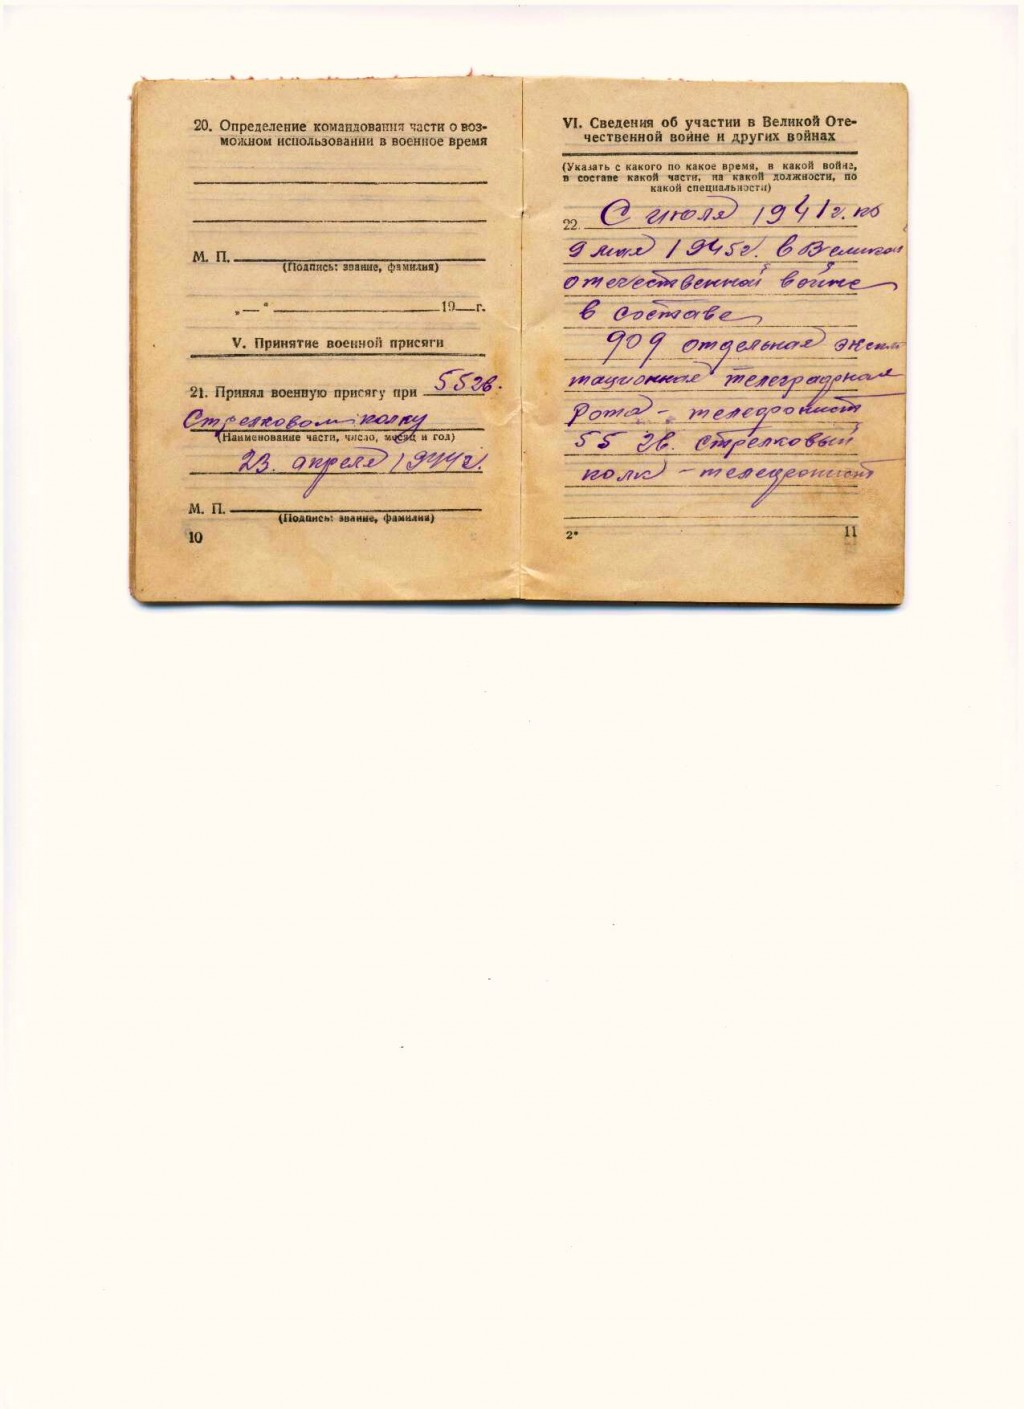 20. Определение командования части о воз-
можном использовании в военное время
М. П.
(Подпись: звание, фамилия)
„—“ 19—г.
V. Принятие военной присяги
21. Принял военную присягу при 55 гв.
Стрелковом полку
(Наименование части, число, месяц и год)
23. апреля 1944г.
М. П.
(Подпись: звание, фамилия)
10
VI. Сведения об участии в Великой Оте-
чественной войне и других войнах
(Указать с какого по какое время, в какой войне,
в составе какой части, на какой должности, по
какой специальности)
22. С июля 1941г. по
9 мая 1945г. в Великой
отечественной войне
в составе
909 отдельная
тационная телеграфная
рота - телефонист
55 гв. стрелковый
полк - телефонист
2*
11